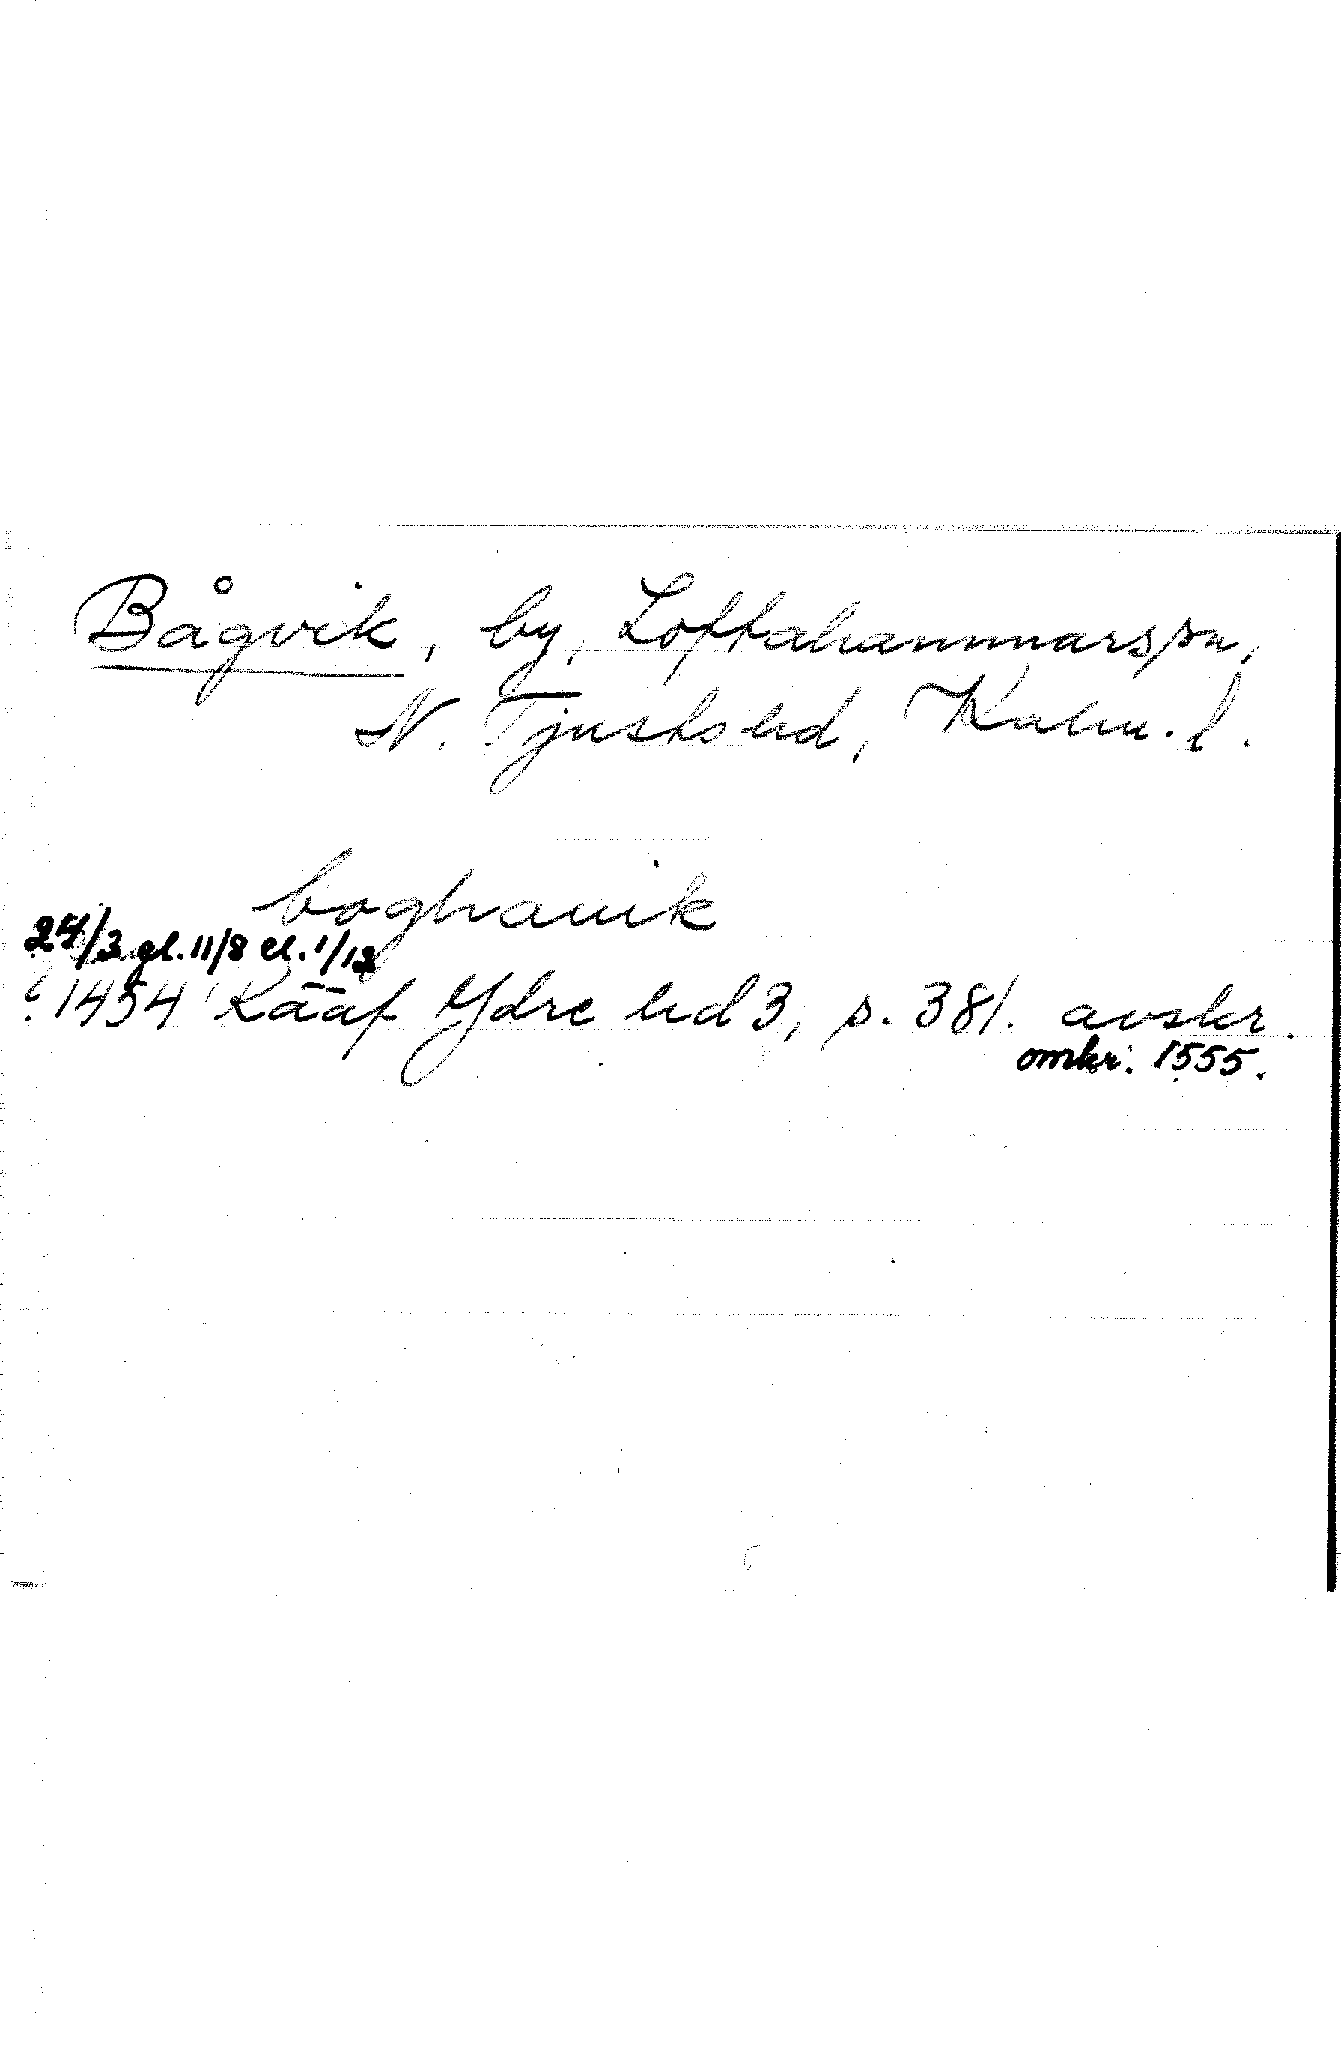 Bågvik, by, Loftahammars sn,
N. Tjusts hd, Kalm. l.
boghauik
24/3 gl. 11/8 el. 1/12
1454 Rääf Ydre hd 3, s. 381. avskr.
omkr. 1555.